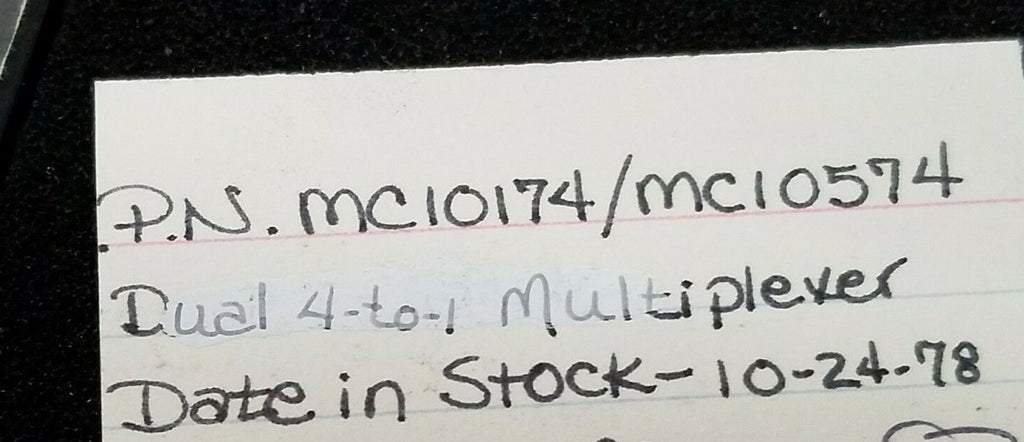 P.N. MC10174/MC10574
Dual 4-to-1 Multiplexer
Date in Stock-10-24-78